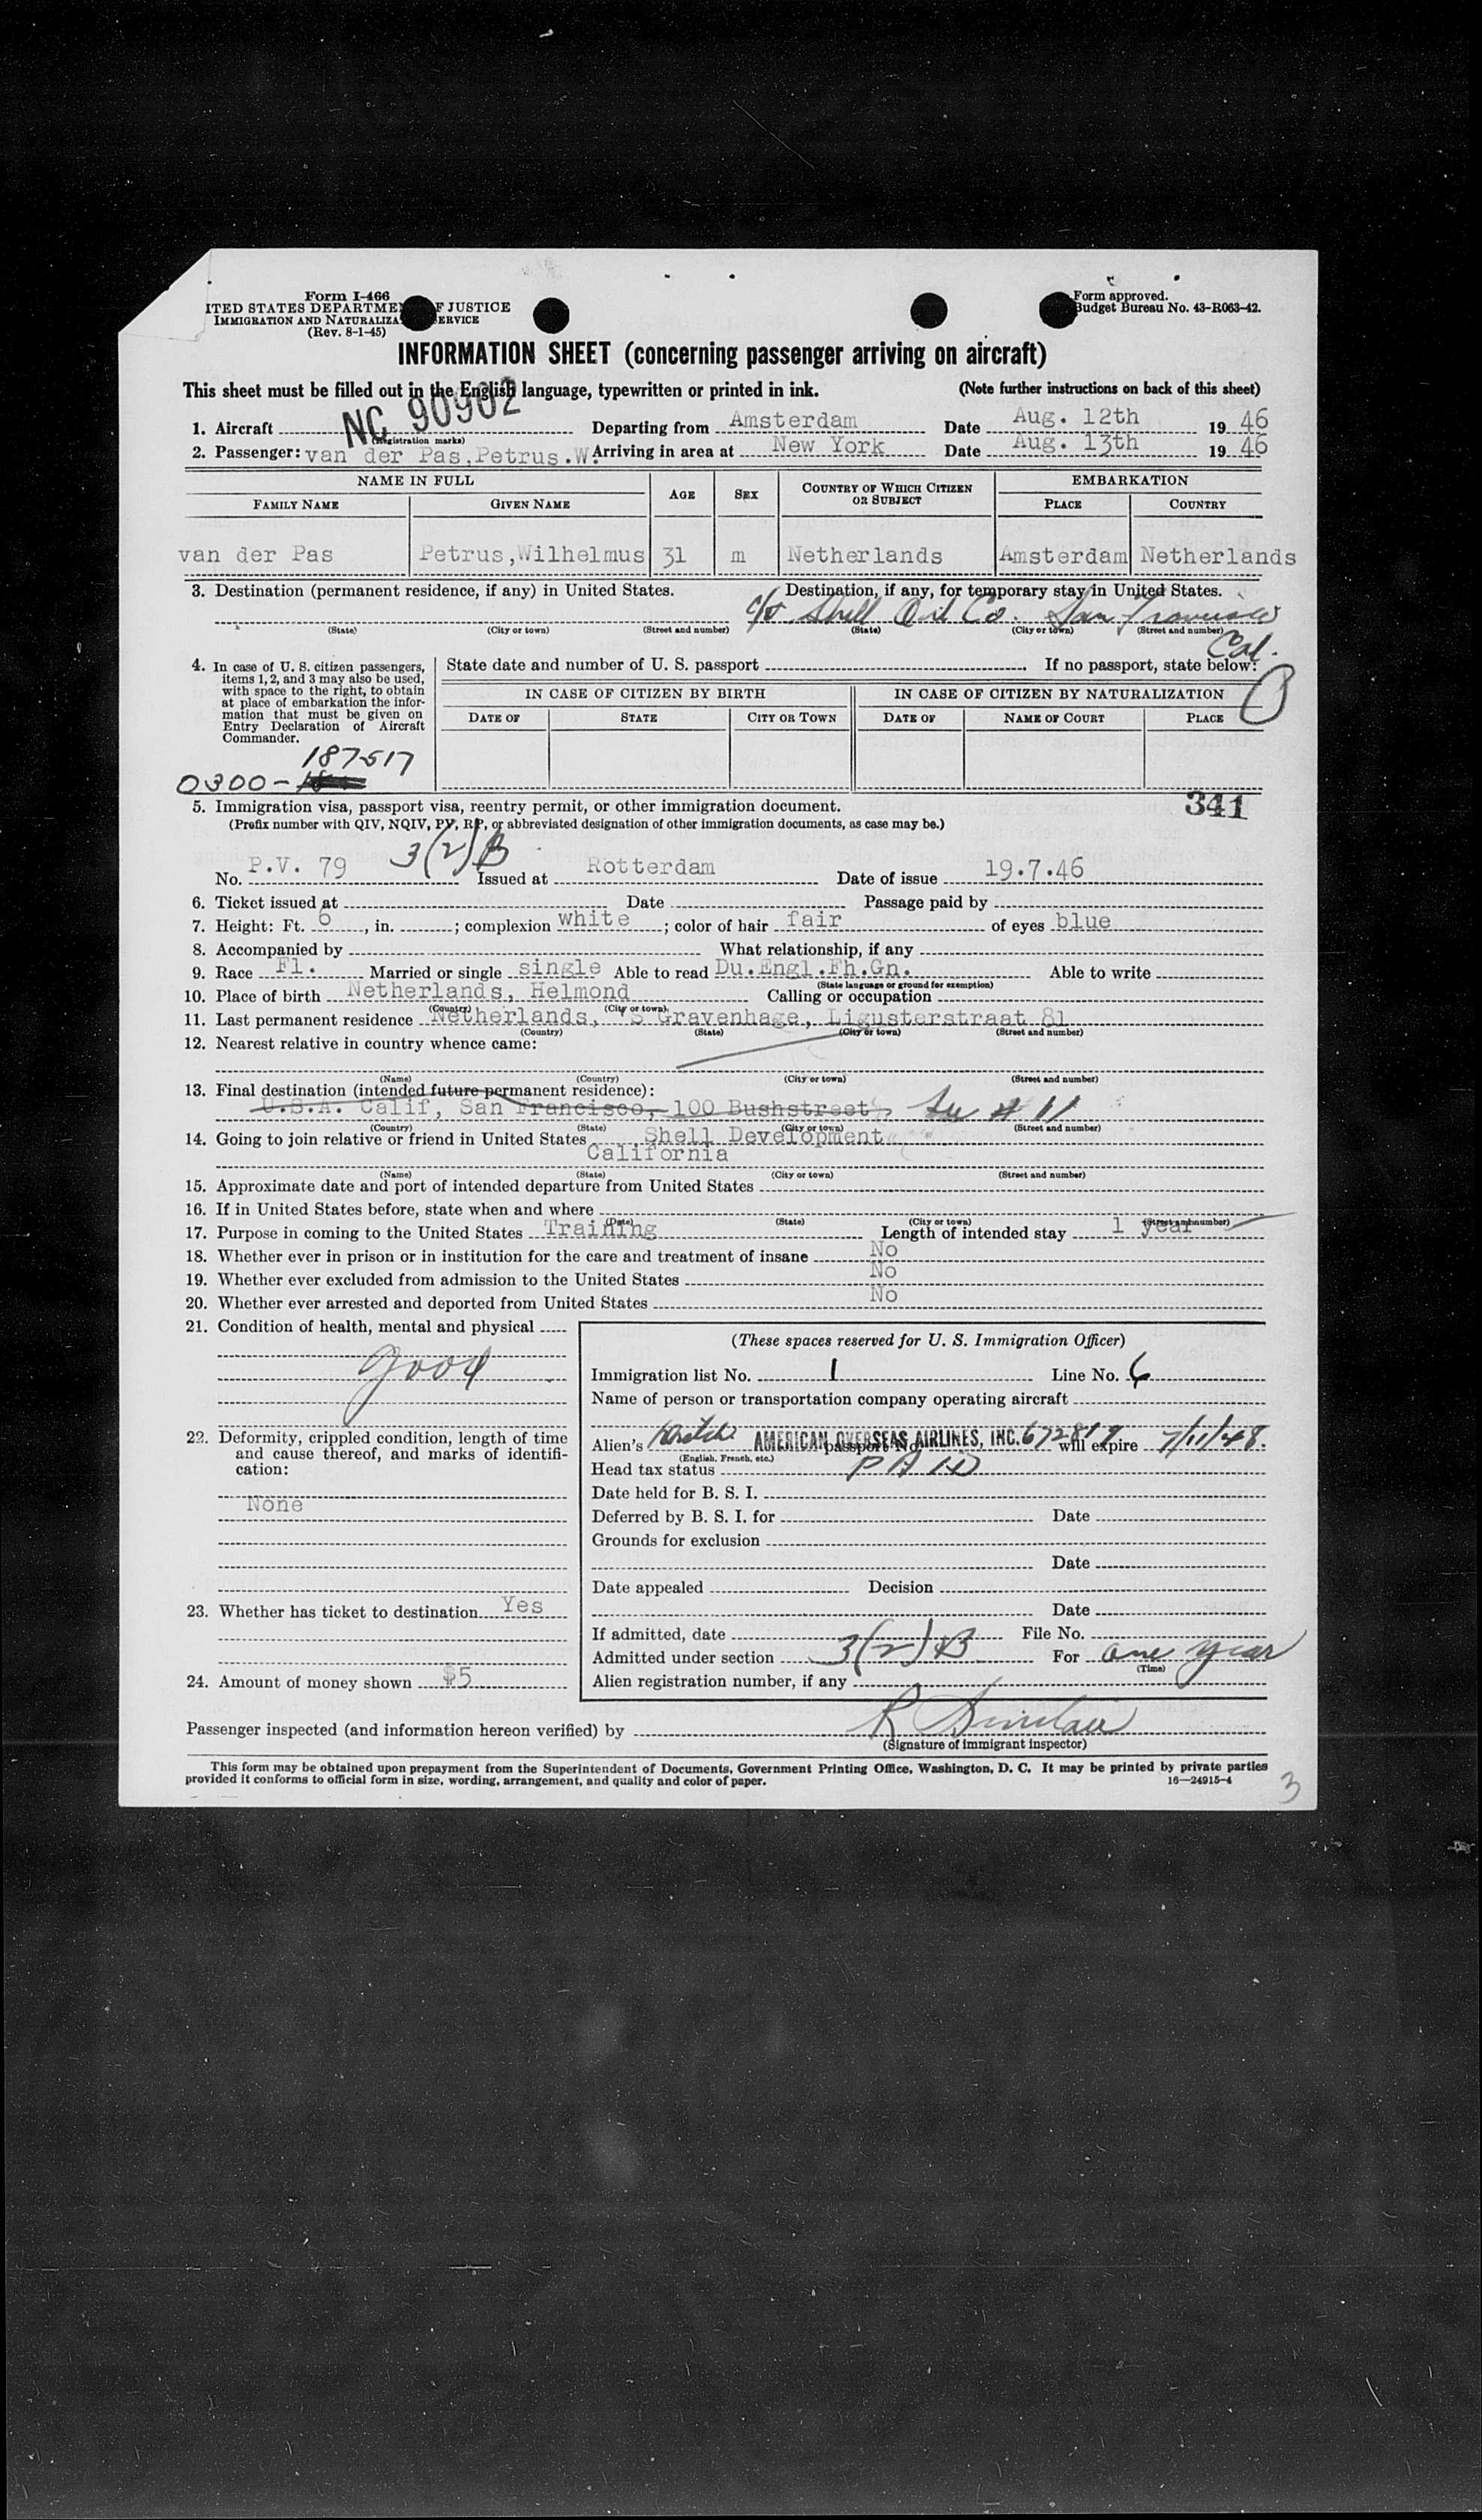 Form I-466
ITED STATES DEPARTME F JUSTICE
IMMIGRATION AND NATURALIZA ERVICE
(Rev. 8-1-45)
Form approved.
Budget Bureau No. 43-R063-42.
INFORMATION SHEET (concerning passenger arriving on aircraft)
This sheet must be filled out in the English language, typewritten or printed in ink. (Note further instructions on back of this sheet)
1. Aircraft NC 90902 Departing from Amsterdam Date Aug. 12th 19 46
(Registration marks)
2. Passenger: van der Pas, Petrus.W. Arriving in area at New York Date Aug. 13th 19 46
NAME IN FULL AGE SEX COUNTRY OF WHICH CITIZEN OR SUBJECT EMBARKATION
FAMILY NAME GIVEN NAME PLACE COUNTRY
van der Pas Petrus,Wilhelmus 31 m Netherlands Amsterdam Netherlands
3. Destination (permanent residence, if any) in United States. Destination, if any, for temporary stay in United States.
c/o Shell Oil Co. San Francisco Cal.
(State) (City or town) (Street and number) (State) (City or town) (Street and number)
4. In case of U. S. citizen passengers, items 1, 2, and 3 may also be used, with space to the right, to obtain at place of embarkation the information that must be given on Entry Declaration of Aircraft Commander.
State date and number of U. S. passport If no passport, state below:
IN CASE OF CITIZEN BY BIRTH IN CASE OF CITIZEN BY NATURALIZATION
DATE OF STATE CITY OR TOWN DATE OF NAME OF COURT PLACE
187517
0300-
5. Immigration visa, passport visa, reentry permit, or other immigration document. 341
(Prefix number with QIV, NQIV, PV, RP, or abbreviated designation of other immigration documents, as case may be.)
No. P.V. 79 3(2)B Issued at Rotterdam Date of issue 19.7.46
6. Ticket issued at Date Passage paid by
7. Height: Ft. 6, in. ; complexion white ; color of hair fair of eyes blue
8. Accompanied by What relationship, if any
9. Race Fl. Married or single single Able to read Du.Engl.Fh.Gn. Able to write
(State language or ground for exemption)
10. Place of birth Netherlands, Helmond Calling or occupation
(Country) (City or town)
11. Last permanent residence Netherlands, 'S Gravenhage, Ligusterstraat 81
(Country) (State) (City or town) (Street and number)
12. Nearest relative in country whence came:
(Name) (Country) (City or town) (Street and number)
13. Final destination (intended future permanent residence):
U.S.A. Calif, San Francisco, 100 Bushstreet, # 11
(Country) (State) (City or town) (Street and number)
14. Going to join relative or friend in United States Shell Development
California
(Name) (State) (City or town) (Street and number)
15. Approximate date and port of intended departure from United States
16. If in United States before, state when and where
(Date) (State) (City or town) (Street and number)
17. Purpose in coming to the United States Training Length of intended stay 1 year
18. Whether ever in prison or in institution for the care and treatment of insane No
19. Whether ever excluded from admission to the United States No
20. Whether ever arrested and deported from United States No
21. Condition of health, mental and physical
good
22. Deformity, crippled condition, length of time and cause thereof, and marks of identification:
None
23. Whether has ticket to destination Yes
24. Amount of money shown $5
(These spaces reserved for U. S. Immigration Officer)
Immigration list No. 1 Line No. 6
Name of person or transportation company operating aircraft
AMERICAN OVERSEAS AIRLINES, INC.
Alien's Dutch passport No. 672817 will expire 7/11/48.
(English, French, etc.)
Head tax status PAID
Date held for B. S. I.
Deferred by B. S. I. for Date
Grounds for exclusion
Date
Date appealed Decision
Date
If admitted, date File No.
Admitted under section 3(2)B For one year
(Time)
Alien registration number, if any
Passenger inspected (and information hereon verified) by R Sinclair
(Signature of immigrant inspector)
This form may be obtained upon prepayment from the Superintendent of Documents, Government Printing Office, Washington, D. C. It may be printed by private parties
provided it conforms to official form in size, wording, arrangement, and quality and color of paper. 16—24915-4
3